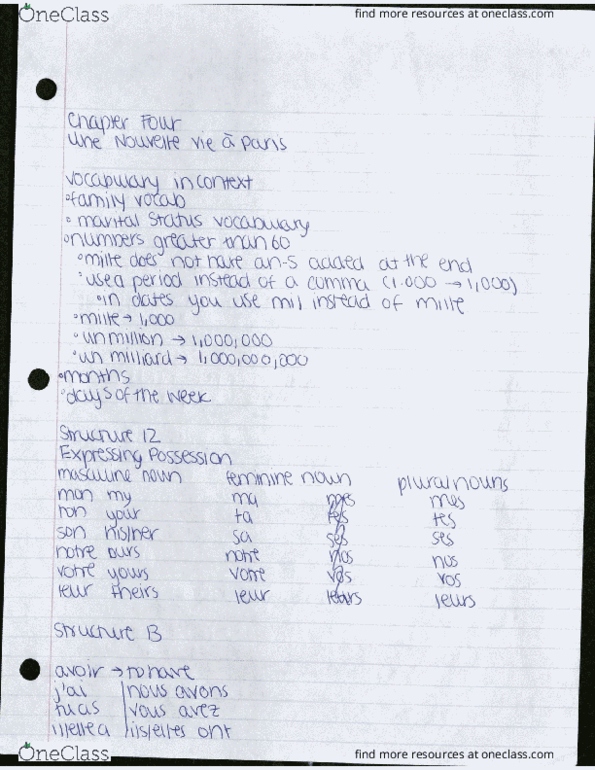 OneClass find more resources at oneclass.com
Chapter Four
Une Nouvelle vie à Paris
vocabulary in context
◦family vocab
◦marital status vocabulary
◦numbers greater than 60
◦mille does not have an -s added at the end
◦use a period instead of a comma (1.000 → 1,000)
◦in dates you use mil instead of mille
◦mille → 1,000
◦un million → 1,000,000
◦un milliard → 1,000,000,000
◦months
◦days of the week
Structure 12
Expressing Possession
masculine noun feminine noun plural nouns
mon my ma mes mes
ton your ta tes tes
son his/her sa ses ses
notre ours notre nos nos
votre yours votre vos vos
leur theirs leur leurs leurs
Structure 13
avoir → to have
j'ai nous avons
tu as vous avez
il/elle a ils/elles ont
OneClass find more resources at oneclass.com